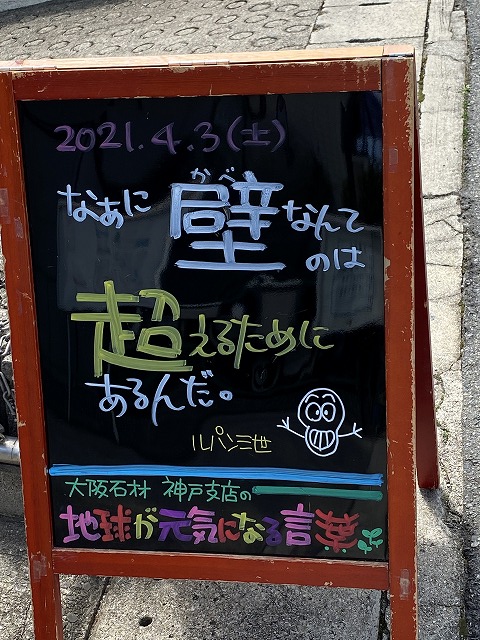 2021.4.3(土)
かべ
なあに壁なんて
のは
超えるために
あるんだ。
ルパン三世
大阪石材 神戸支店の
地球が元気になる言葉